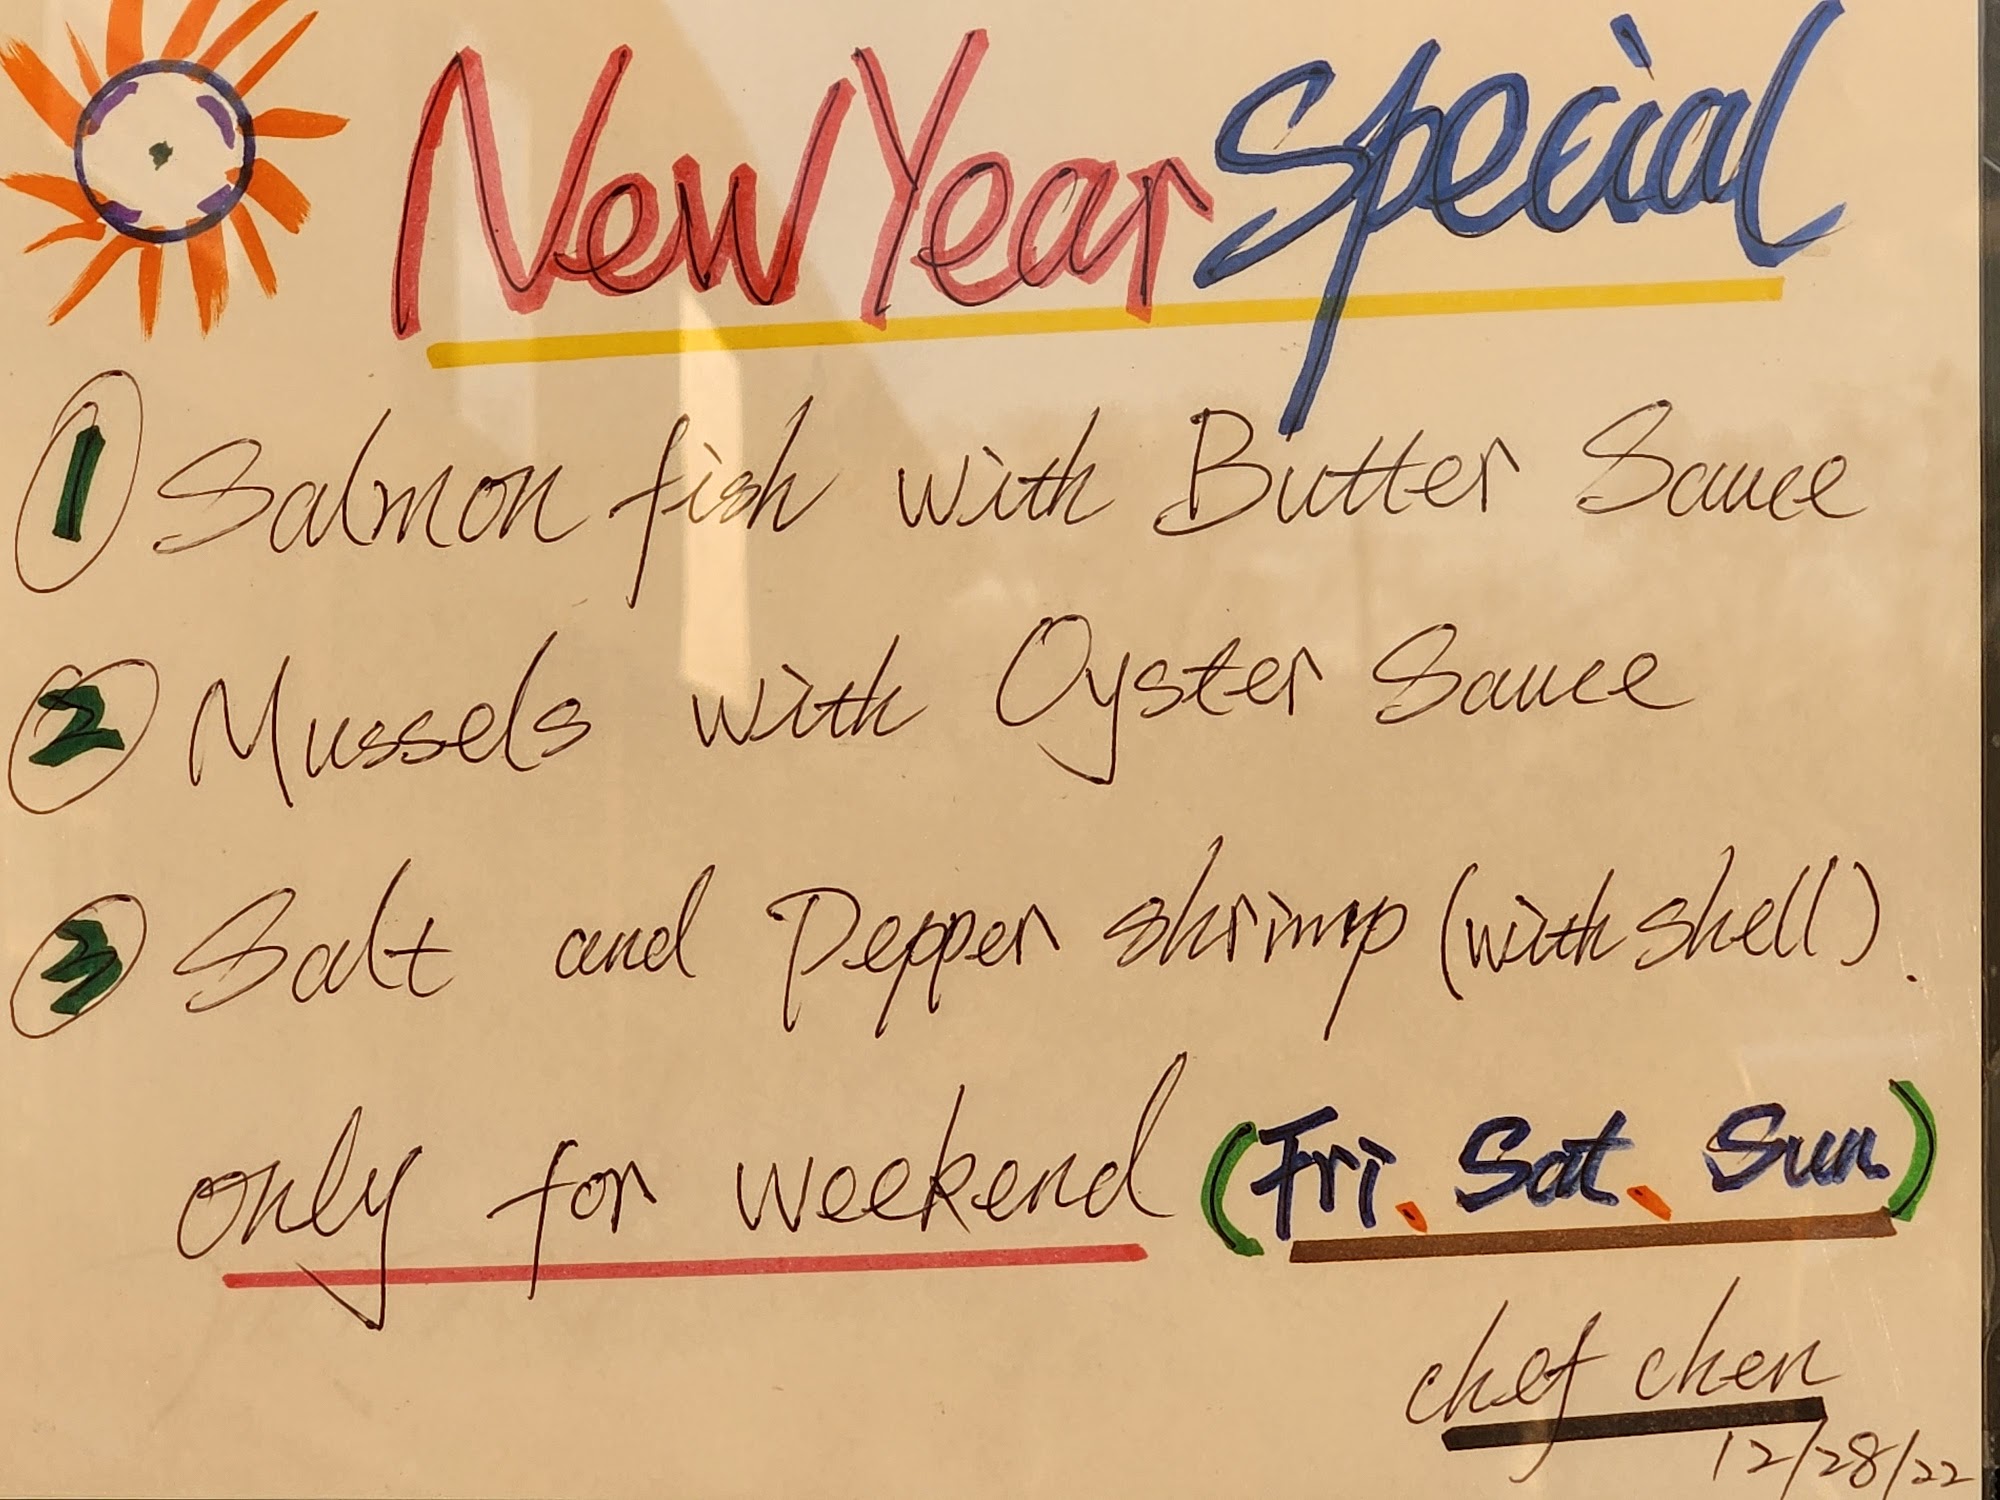 New Year Special
1 Salmon fish with Butter Sauce
2 Mussels with Oyster Sauce
3 Salt and Pepper shrimp (with shell).
only for weekend (Fri、Sat、Sun)
chef chen
12/28/22